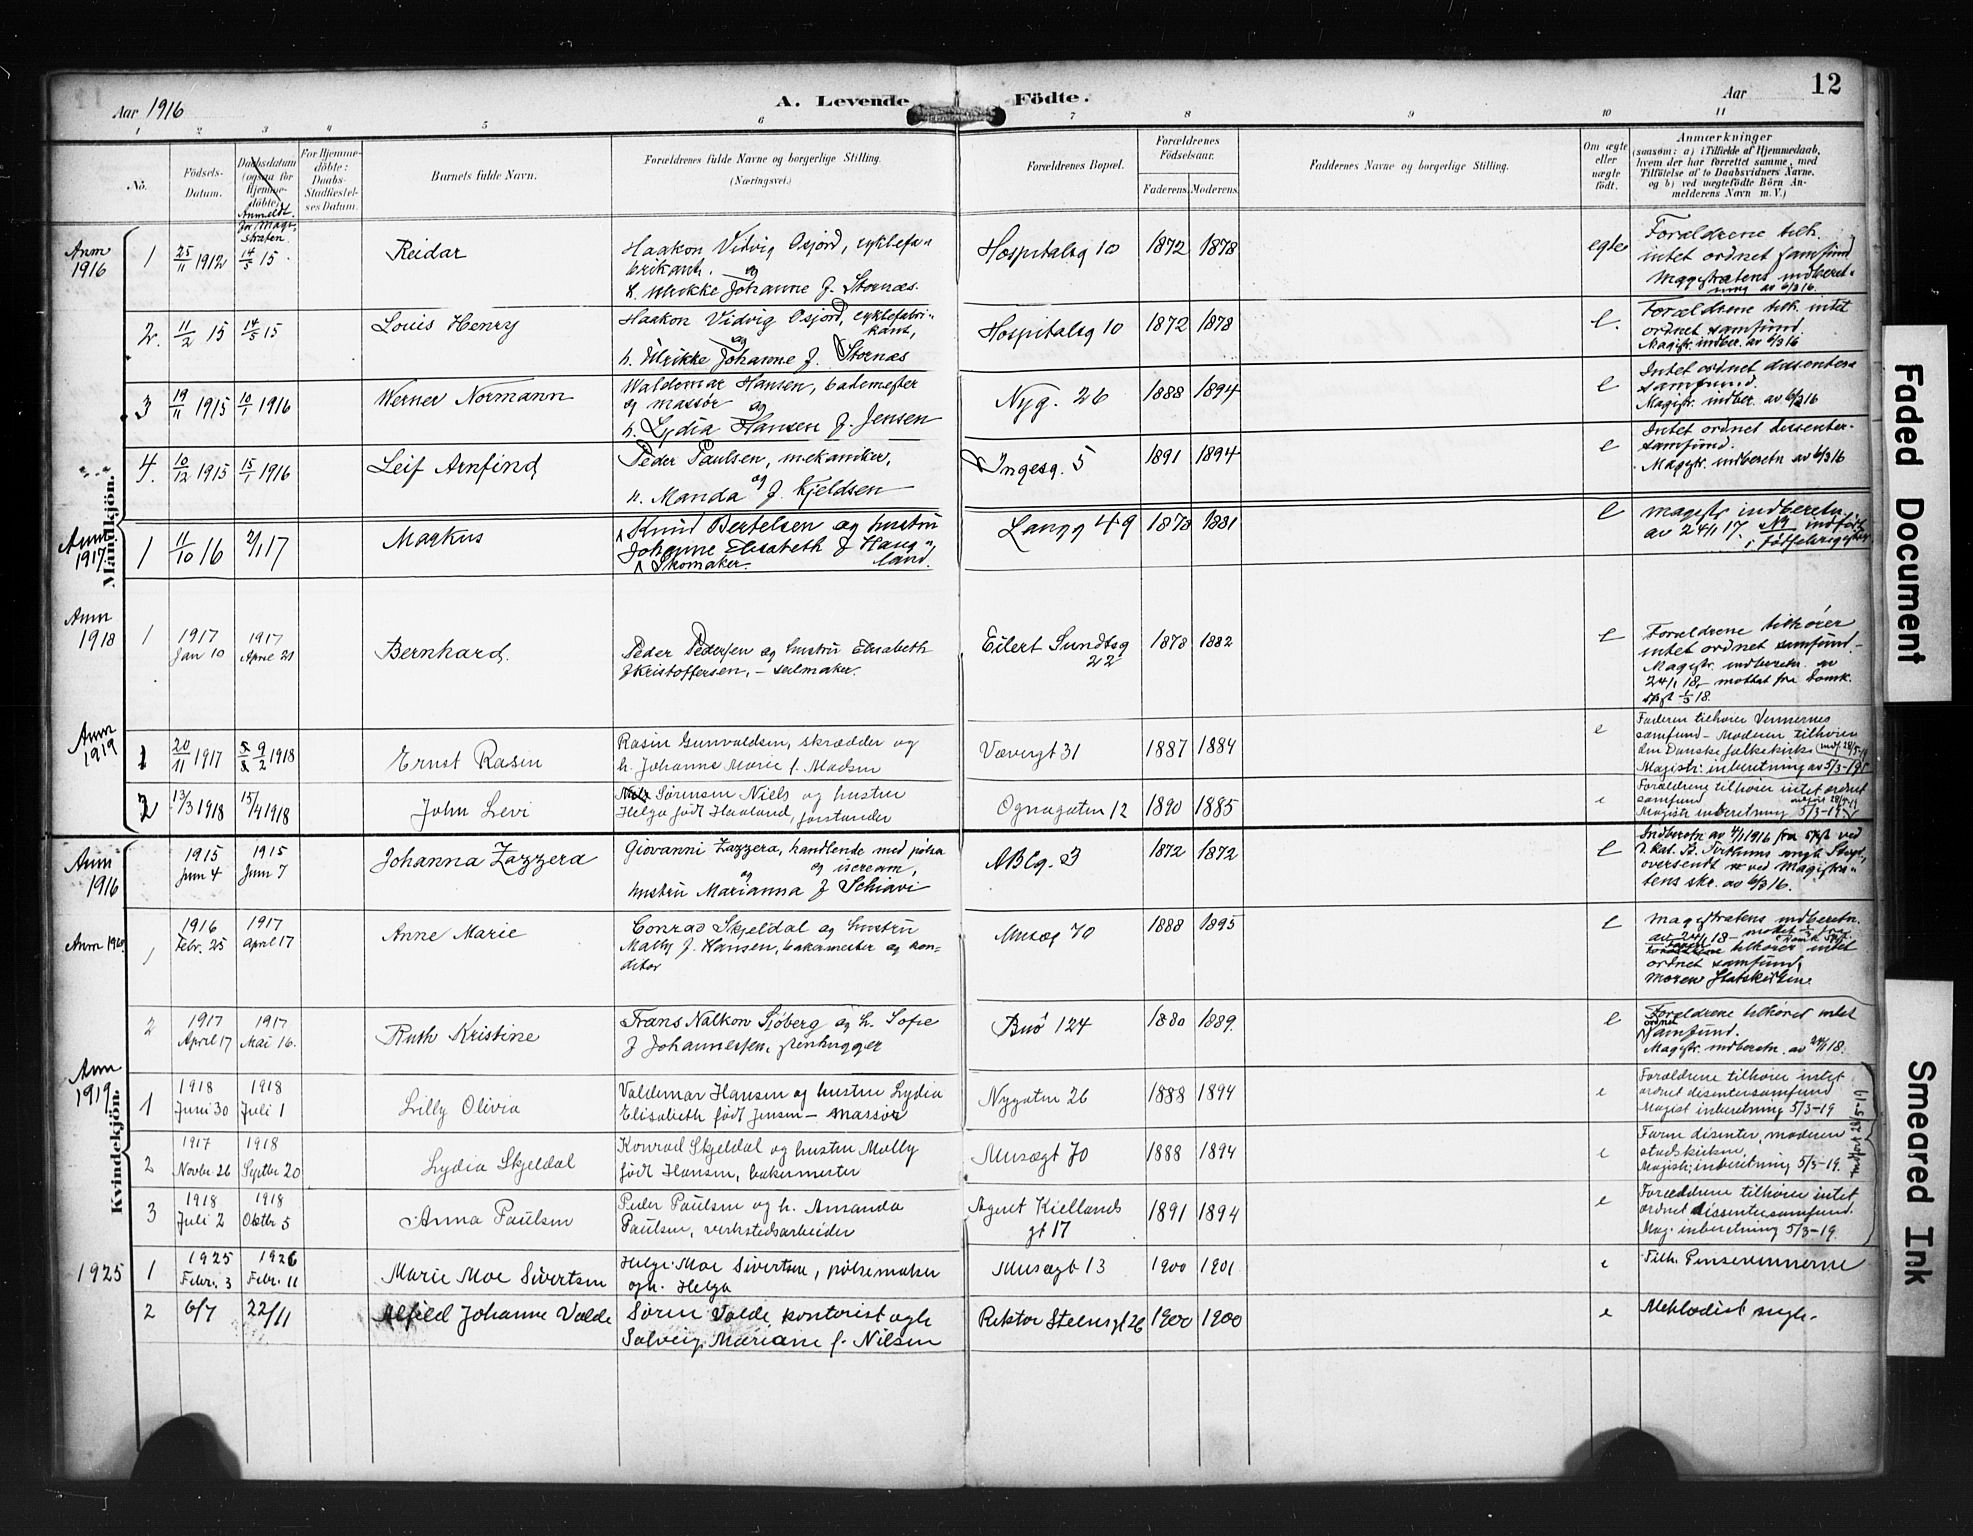 Aar 1916
A. Levende Födte.
Aar
12
1 2 3 4 5 6 7 8 9 10 11
No.
Födsels-Datum.
Daabsdatum (ogsaa for Hjemme-döbte)
Anmeldt for Magi-straten.
For Hjemme-döbte: Daabs-Stadfæstel-ses Datum.
Barnets fulde Navn.
Forældrenes fulde Navne og borgerlige Stilling.
(Næringsvei.)
Forældrenes Bopæl.
Forældrenes Födselsaar.
Faderens. Moderens.
Faddernes Navne og borgerlige Stilling.
Om ægte eller uægte födt.
Anmærkninger
(saasom: a) i Tilfælde af Hjemmedaab,
hvem der har forrettet samme, med
Tilföielse af to Daabsvidners Navne,
og b) ved uægtefödte Börn An-
melderens Navn m. V.)
Mandkjön.
Anm 1916
1 25/11 1912 14/5 15 Reidar
Haakon Vidvig Osjord, cyklefa-
brikant. og
h. Ulrikke Johanne f. Stornæs.
Hospitalsg 10 1872 1878 egte
Forældrene tilh.
intet ordnet samfund
Magistratens indberet-
ning av 6/3 16.
2. 11/2 15 14/5 15 Louis Henry
Haakon Vidvig Osjord, cyklefabri-
kant, og
h. Ulrikke Johanne f. Stornæs
Hospitalsg 10 1872 1878 e.
Forældrene tilh. intet
ordnet samfund.
Magistr. indber. av 6/3 16
3 19/11 1915 10/1 1916 Werner Normann
Waldemar Hansen, bademester
og massør og
h. Lydia Hansen f. Jensen
Nyg. 26 1888 1894 e
Intet ordnet dissenter
samfund.
Magistr. indber. av 6/3 16
4. 10/12 1915 15/1 1916 Leif Arnfind
Peder Paulsen, mekaniker,
og
h. Manda f. Kjeldsen
Ingesg. 5 1891 1894 e
Intet ordnet dissenter-
samfund.
Magistr. indberetn av 6/3 16
Anm 1917
1 11/10 16 2/1 17 Markus
Knud Bertelsen og hustru
Johanne Elisabeth f Haug-
land.
Skomaker.
Langg 49 1878 1881 e
Magistr indberetn.
av 24/1 17.
Anm 1918
1 1917 Jan 10 1917 April 21 Bernhard.
Peder Pedersen og hustru Elisabeth
f Kristoffersen, - seilmaker.
Eilert Sundtsg 22 1878 1882 e
Forældrene tilhører
intet ordnet samfund.-
Magistr. indberetn. av
24/1 18, mottat fra Domk.
1/3 18.
Anm 1919
1 20/11 1917 9/2 1918 Ernst Rasin
Rasin Gunvaldsen, skrædder og
h. Johanne Marie f. Madsen
Vævergt 31 1887 1884 e
Faderen tilhører Vennernes
samfund - Moderen tilhører
den Danske folkekirke
Magistr. inberetning av 5/3-19
2 13/3 1918 15/4 1918 John Levi
Sörensen Niels og hustru
Helga født Haaland, forstander
Ognagaten 12 1890 1885 e
Forældrene tilhører intet ordnet
samfund
Magistr inberetning 5/3-19
Kvindekjön.
Anm 1916
1915 Juni 4 1915 Juni 7 Johanna Zazzera
Giovanni Zazzera, handlende med pølse
og iscream,
og
hustru Marianna f Schiavi
ABCg. 3 1872 1872 e
Indberetn av 4/1 1916 fra
oversendt ved Magistra-
tens skr. av 6/3 16.
Anm
1 1916 Febr. 25 1917 April 17 Anne Marie
Conrad Skjeldal og hustru
Mally f. Hansen, bakermester og kon-
ditor
Musæg 70 1888 1895 e
Magistratens indberetn.
av 24/1 18
tilhører intet
ordnet samfund,
moren Statskirken
2 1917 April 17 1917 Mai 16. Ruth Kristine
Frans Nalkon Sjöberg og h. Sofie
f Johannessen, stenhugger
Buö 124 1880 1889. e
Forældrene tilhører intet
ordnet samfund.
Magistr. indberetn. av 24/1 18.
Anm 1919
1 1918 Juni 30 1918 Juli 1 Lilly Olivia
Valdemar Hansen og hustru Lydia
Elisabeth født Jensen - massør
Nygaten 26 1888 1894 e
Forældrene tilhører intet
ordnet disintersamfund
Magist inberetning 5/3-19
2 1917 Novbr 26 1918 Septbr 20 Lydia Skjeldal
Konrad Skjeldal og hustru Mally
født Hansen, bakermester
Musægt 70 1888 1894 e
Faren disinter, moderen
statskirken,
Magistr. inberetning 5/3-19.
indført 28/5-19
3 1918 Juli 2 1918 Oktbr 5 Anna Paulsen
Peder Paulsen og h. Amanda
Paulsen, verkstedsarbeider
Agent Kiellands gt 17 1891 1894 e
Forældrene tilhører intet
ordnet dissentersamfund.
Mag. inberetning 5/3-19.
1925
1 1925 Febr. 3 1926 Febr. 11 Marie Moe Sivertsen
Helge Moe Sivertsen, pølsemaker
og h. Helga
Musægt 13 1900 1901 e
Tilh. Pinsevennerne
2 6/7 22/11 Alfild Johanne Valde
Sören Valde, kontorist og h
Solveig Mariane f. Nilsen
Rektor Steensgt 26 1900 1900 e
Methodist
Faded Document
Smeared Ink